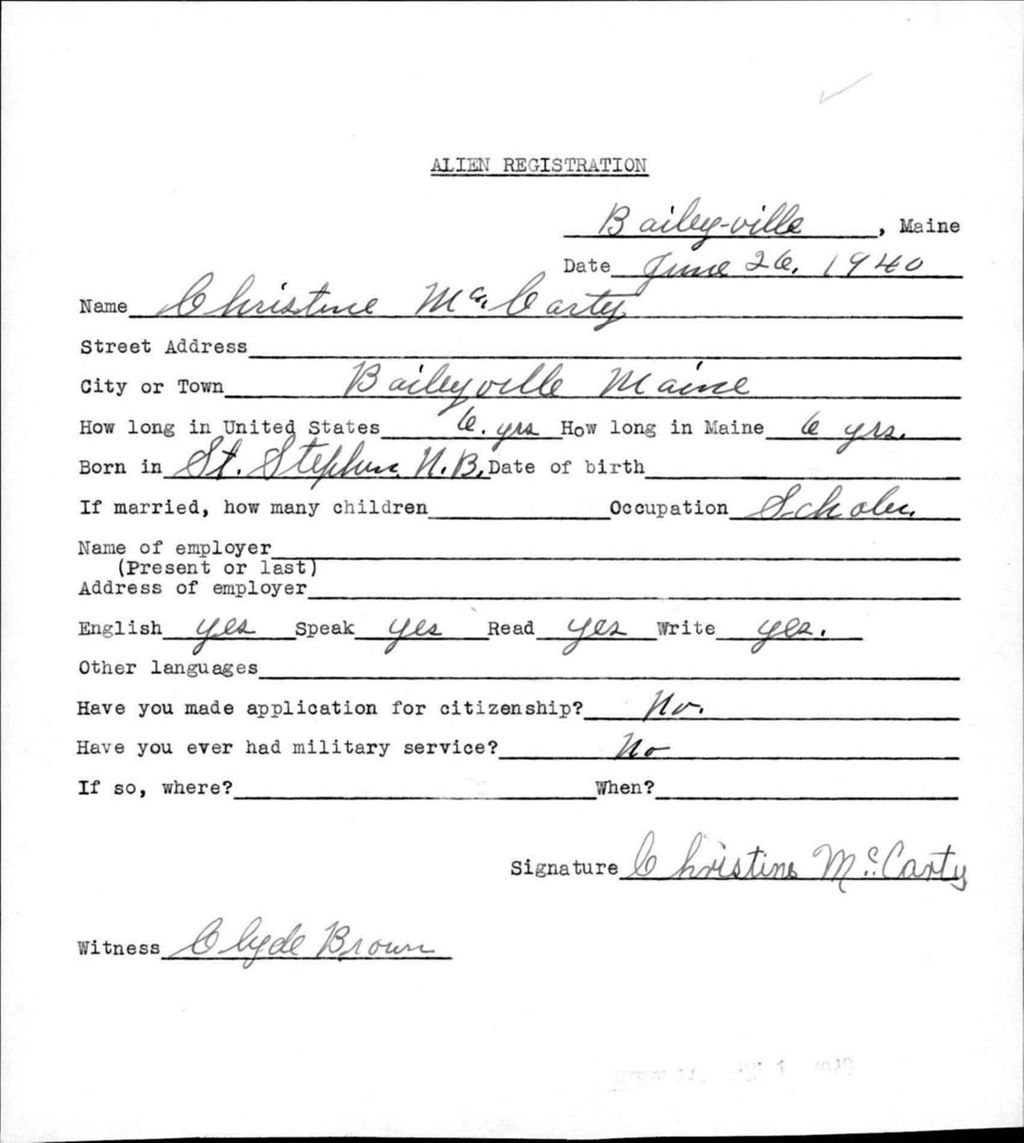 ALIEN REGISTRATION
Bailey-ville, Maine
Date June 26, 1940
Name Christine McCarty
Street Address
City or Town Baileyville Maine
How long in United States 6. yrs How long in Maine 6 yrs.
Born in St. Stephen N.B. Date of birth
If married, how many children Occupation Scholar
Name of employer
(Present or last)
Address of employer
English yes Speak yes Read yes Write yes.
Other languages
Have you made application for citizenship? No.
Have you ever had military service? No
If so, where? When?
Signature Christine McCarty
Witness Clyde Brown